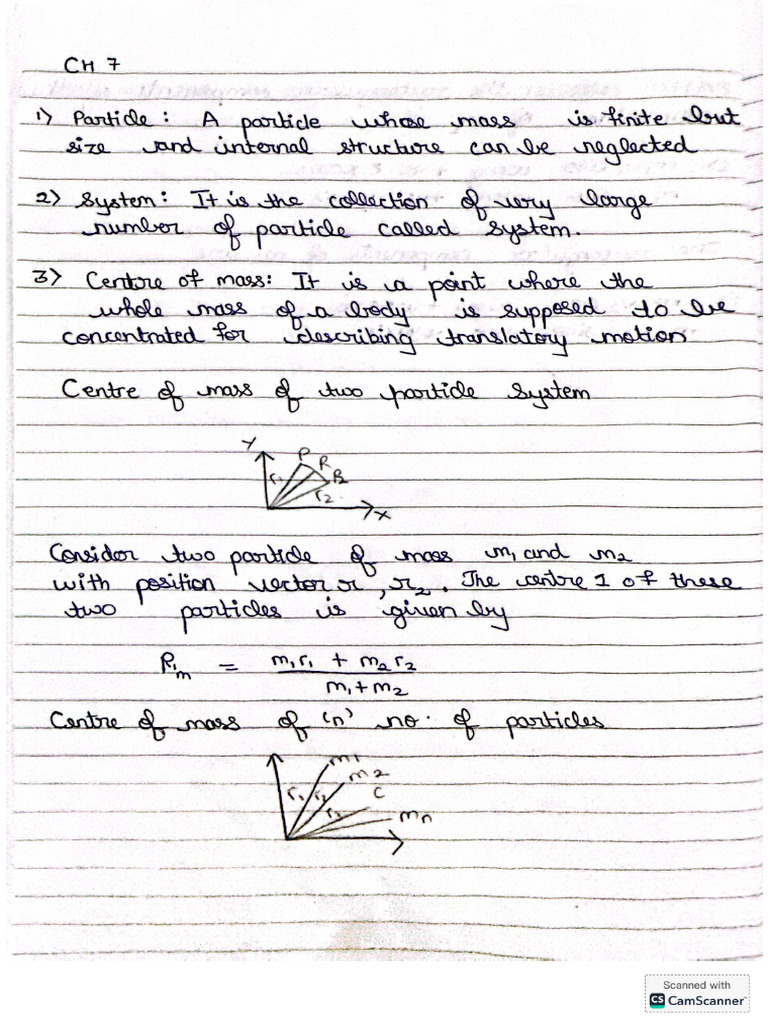 CH 7
1) Particle: A particle whose mass is finite but
size and internal structure can be neglected
2) System: It is the collection of very large
number of particle called system.
3) Centre of mass: It is a point where the
whole mass of a body is supposed to be
concentrated for describing translatory motion
Centre of mass of two particle system
Y
P
R
r1
r2
X
Consider two particle of mass m1 and m2
with position vector r, r2. The centre 1 of these
two particles is given by
Rm = m1r1 + m2r2
m1+m2
Centre of mass of 'n' no. of particles
m1
m2
r1
r2
C
mn
Scanned with
CS CamScanner